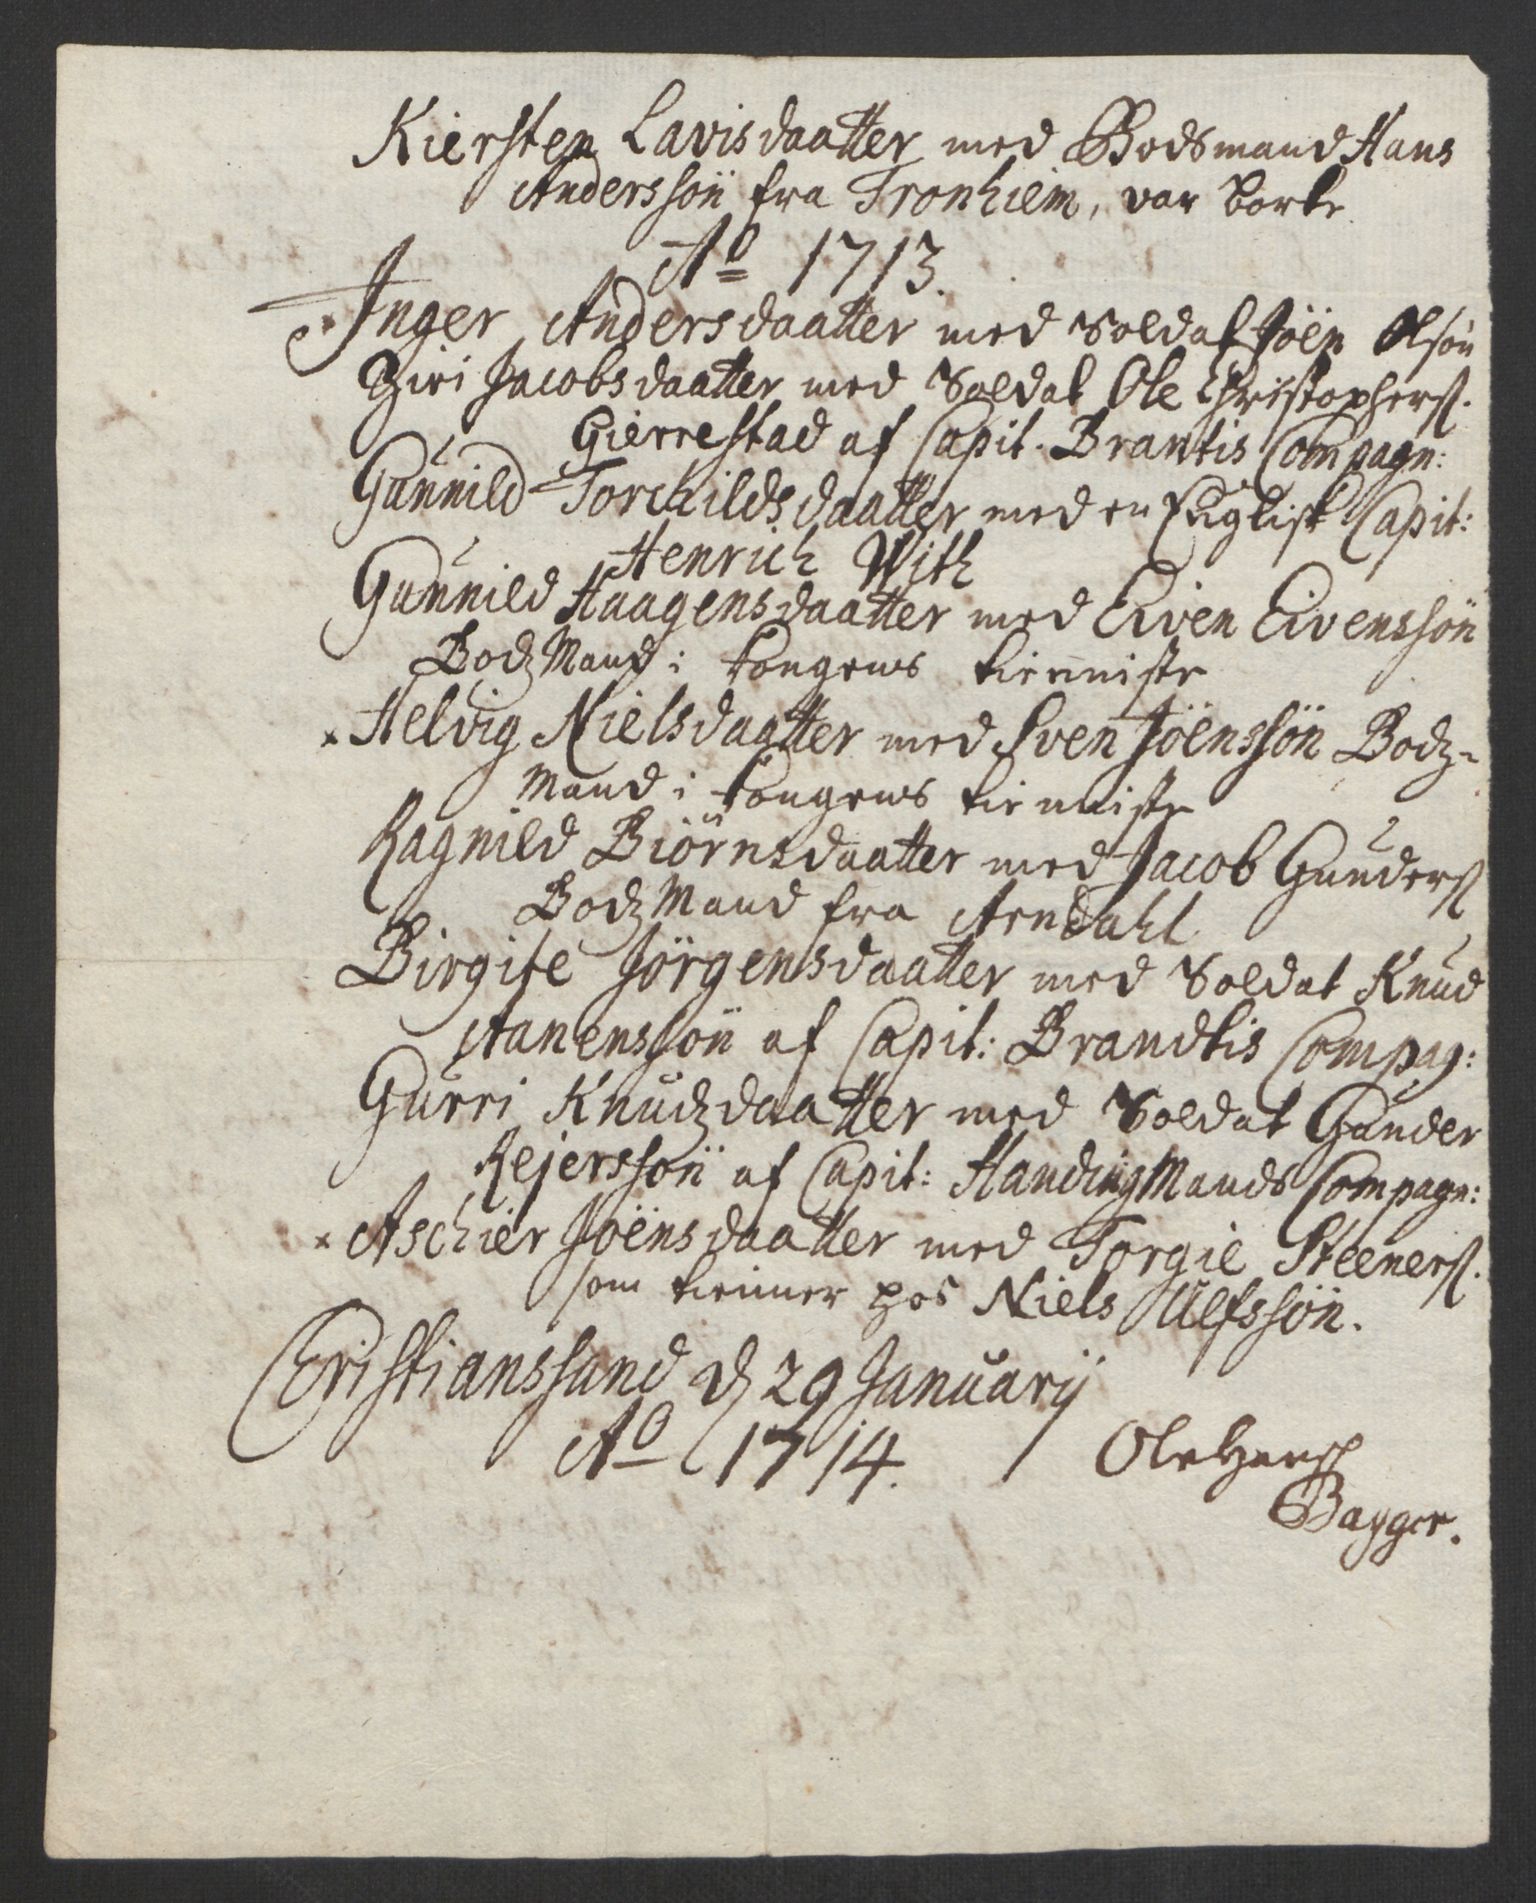 Kiersten Lavisdaatter med Bodsmand Hans
Anderssön fra Tronhiem, var borte
Ao 1713.
Inger Andersdaatter med Soldat Jöen Olsön
Ziri Jacobsdaatter med Soldat Ole Christophers.
Gierrestad af Capit. Brantis Compagn:
Gunnild Torchildsdaatter med en Englisk Capit:
Henrich With
Gunnild Haagensdaatter med Eiven Eivenssön
BodzMand i Kongens tienniste
× Helvig Nielsdaatter med Sven Jöenssön Bodz-
Mand i Kongens tienniste
Ragnild Biörnsdaatter med Jacob Gunders
BodzMand fra Arndahl
Birgite Jörgensdaatter med Soldat Knud
Aanenssön af Capit: Brandtis Compag:
Gurri Knudzdaatter med Soldat Gunder
Rejerssön af Capit: HandingMands Compagn:
× Aschier Joënsdaatter med Torgie Steeners.
som tienner hos Niels Ulfssön.
Christianssand d 29 Januarij
Ao 1714. Ole Hans
Bagger.